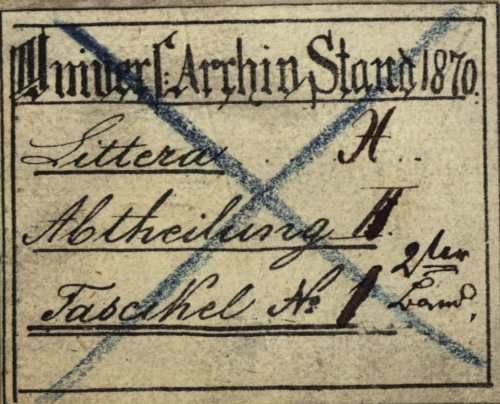 Univers: Archiv Stand 1870.
Littera H.
Abtheilung II.
Fascikel No 1 2ter Band.